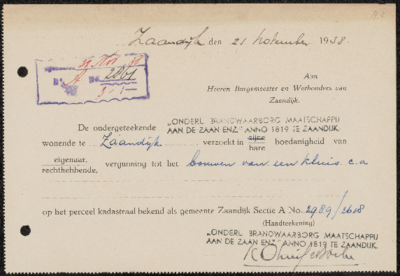 Zaandijk den 21 November 1938.
Aan
Heeren Burgemeester en Wethouders van
Zaandijk.
2861
"ONDERL BRANDWAARBORG MAATSCHAPPIJ
De ondergeteekende AAN DE ZAAN ENZ" ANNO 1819 TE ZAANDIJK.
wonende te Zaandijk, verzoekt in zijne hoedanigheid van
hare
eigenaar, vergunning tot het bouwen van een kluis c.a
rechthebbende,
op het perceel kadastraal bekend als gemeente Zaandijk Sectie A No. 2989/2618
(Handteekening)
"ONDERL BRANDWAARBORG MAATSCHAPPIJ
AAN DE ZAAN ENZ" ANNO 1819 TE ZAANDIJK.